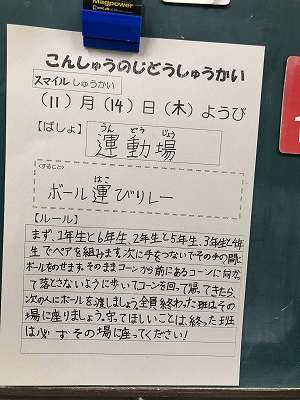 Magpower
こんしゅうのじどうしゅうかい
スマイルしゅうかい
(11)月(14)日(木)ようび
【ばしょ】
うん どう じょう
運動場
<すること>
はこ
ボール運びリレー
【ルール】
まず、1年生と6年生、2年生と5年生、3年生と4年
生でペアを組みます。次に手をつないでその手の間に
ボールをのせます。そのままコーンから前にあるコーンに向かっ
て落とさないように歩いてコーンを回って帰ってきたら、
次の人にボールを渡しましょう。全員終わった班はその
場に座りましょう。守ってほしいことは、終った班
は必ずその場に座ってください!